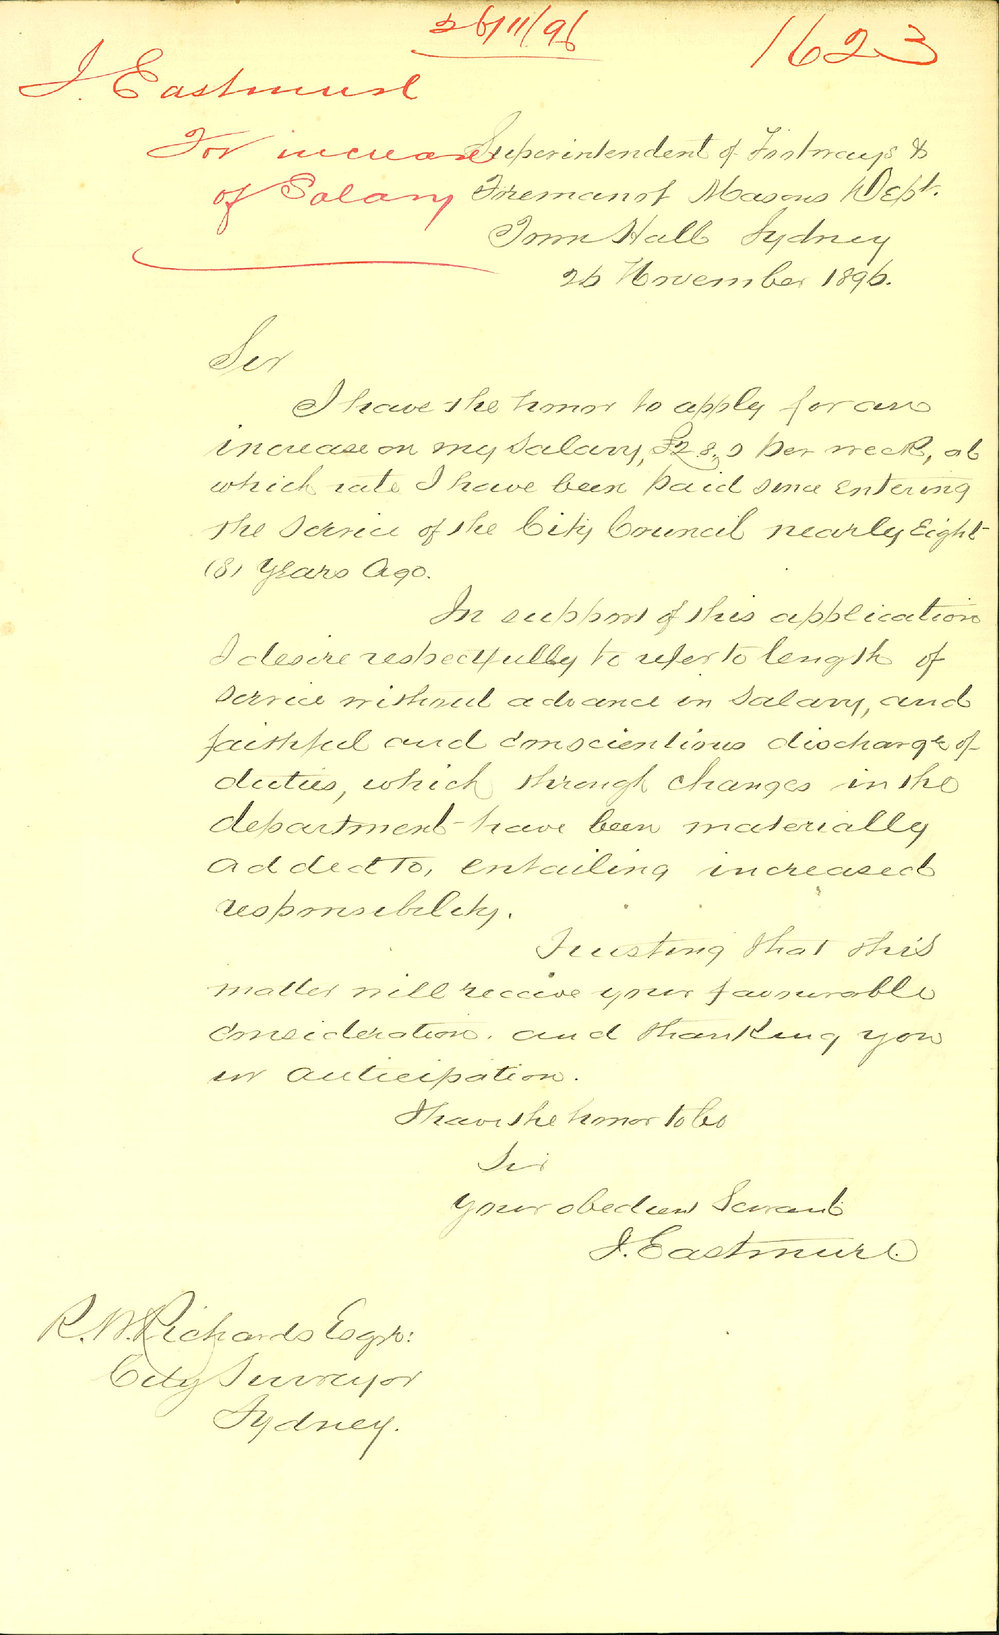 26/11/96
1623
J. Eastmure
For increase
of Salary
Superintendent of Footways &
Foreman of Masons Dept.
Town Hall Sydney
26 November 1896.
Sir
I have the honor to apply for an
increase on my salary, £2.8.0 per week, at
which rate I have been paid since entering
the service of the City Council nearly Eight
(8) years ago.
In support of this application
I desire respectfully to refer to length of
service without advance in salary, and
faithful and conscientious discharge of
duties, which through changes in the
department have been materially
added to, entailing increased
responsibility.
Trusting that this
matter will receive your favourable
consideration. and thanking you
in anticipation.
I have the honor to be
Sir
your obedient Servant
J. Eastmure
R. W. Richards Esqr:
City Surveyor
Sydney.